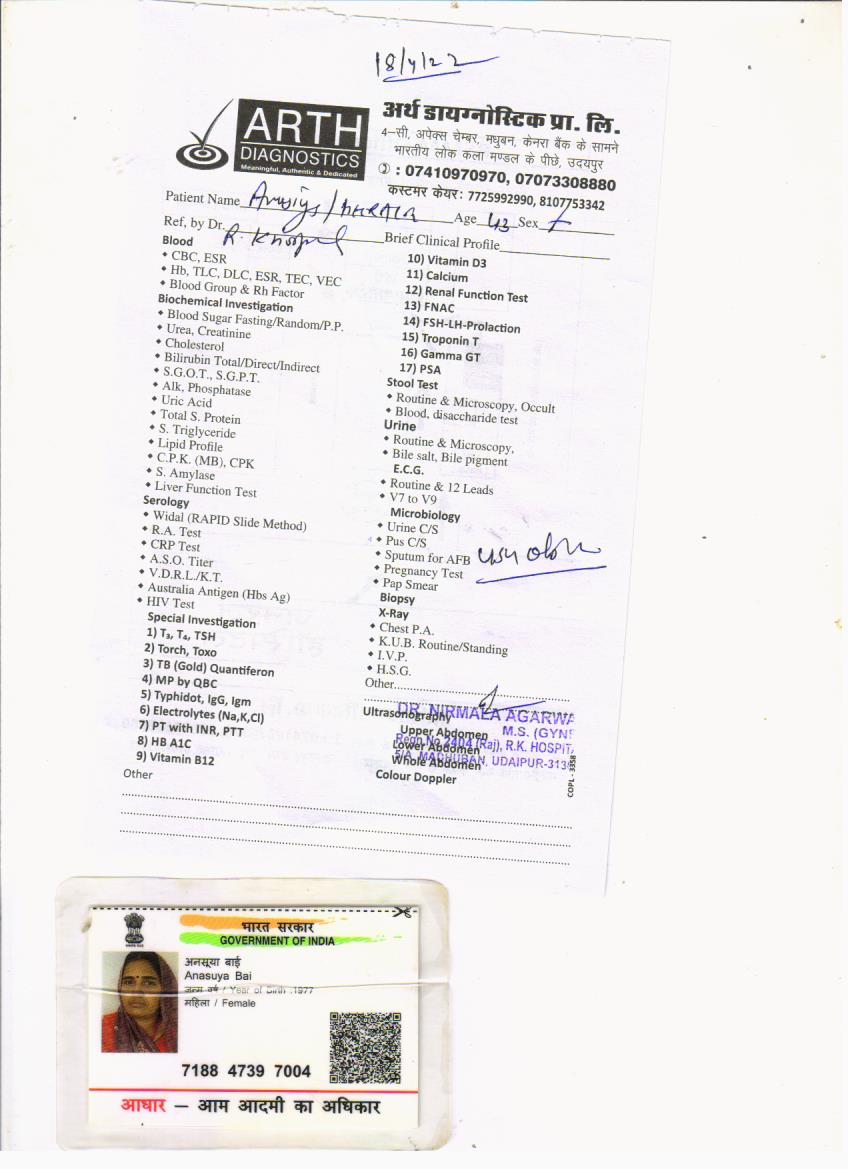 18/4/22
ARTH
DIAGNOSTICS
Meaningful, Authentic & Dedicated
अर्थ डायग्नोस्टिक प्रा. लि.
4–सी, अपेक्स चेम्बर, मधुबन, केनरा बैंक के सामने
भारतीय लोक कला मण्डल के पीछे, उदयपुर
: 07410970970, 07073308880
कस्टमर केयर: 7725992990, 8107753342
Patient Name Age 43 Sex F
Ref, by Dr. R. Brief Clinical Profile
Blood
• CBC, ESR
• Hb, TLC, DLC, ESR, TEC, VEC
• Blood Group & Rh Factor
Biochemical Investigation
• Blood Sugar Fasting/Random/P.P.
• Urea, Creatinine
• Cholesterol
• Bilirubin Total/Direct/Indirect
• S.G.O.T., S.G.P.T.
• Alk, Phosphatase
• Uric Acid
• Total S. Protein
• S. Triglyceride
• Lipid Profile
• C.P.K. (MB), CPK
• S. Amylase
• Liver Function Test
Serology
• Widal (RAPID Slide Method)
• R.A. Test
• CRP Test
• A.S.O. Titer
• V.D.R.L./K.T.
• Australia Antigen (Hbs Ag)
• HIV Test
Special Investigation
1) T₃, T₄, TSH
2) Torch, Toxo
3) TB (Gold) Quantiferon
4) MP by QBC
5) Typhidot, IgG, Igm
6) Electrolytes (Na,K,Cl)
7) PT with INR, PTT
8) HB A1C
9) Vitamin B12
Other
10) Vitamin D3
11) Calcium
12) Renal Function Test
13) FNAC
14) FSH-LH-Prolaction
15) Troponin T
16) Gamma GT
17) PSA
Stool Test
• Routine & Microscopy, Occult
• Blood, disaccharide test
Urine
• Routine & Microscopy,
• Bile salt, Bile pigment
E.C.G.
• Routine & 12 Leads
• V7 to V9
Microbiology
• Urine C/S
• Pus C/S
• Sputum for AFB
• Pregnancy Test
• Pap Smear
Biopsy
X-Ray
• Chest P.A.
• K.U.B. Routine/Standing
• I.V.P.
• H.S.G.
Other
DR. NIRMALA AGARWA
Ultrasonography
M.S. (GYNE
Upper Abdomen
Regn.No. 2404 (Raj), R.K. HOSPITA
Lower Abdomen
5/A, MADHUBAN, UDAIPUR-3130
Whole Abdomen
Colour Doppler
COPL - 3358
भारत सरकार
GOVERNMENT OF INDIA
अनसूया बाई
Anasuya Bai
जन्म वर्ष / Year of Birth :1977
महिला / Female
7188 4739 7004
आधार – आम आदमी का अधिकार